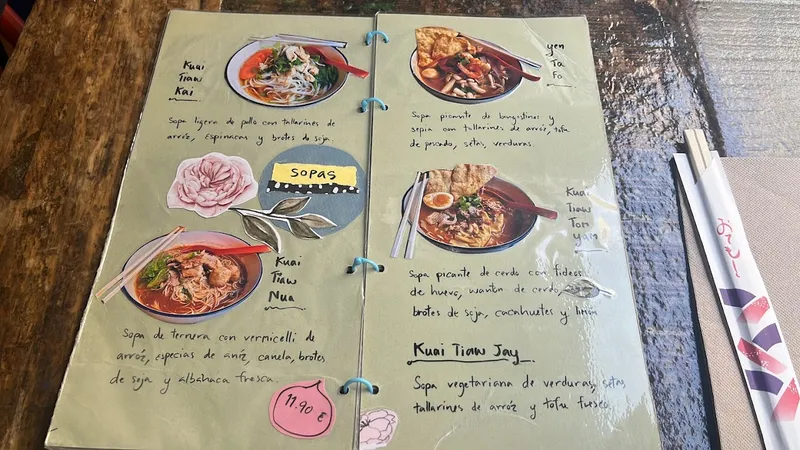 Kuai
Tiaw
Kai
Sopa ligera de pollo con tallarines de
arroz, espinacas y brotes de soja.
SOPAS
Kuai
Tiaw
Nua
Sopa de ternera con vermicelli de
arroz, especias de aníz, canela, brotes
de soja y albahaca fresca.
11.90 €
yen
Ta
Fo
Sopa picante de langostinos y
sepia con tallarines de arroz, tofu
de pescado, setas, verduras.
Kuai
Tiaw
Tom
yam
Sopa picante de cerdo con fideos
de huevo, wantón de cerdo,
brotes de soja, cacahuetes y limón
Kuai Tiaw Jay
Sopa vegetariana de verduras, setas
tallarines de arroz y tofu fresco.